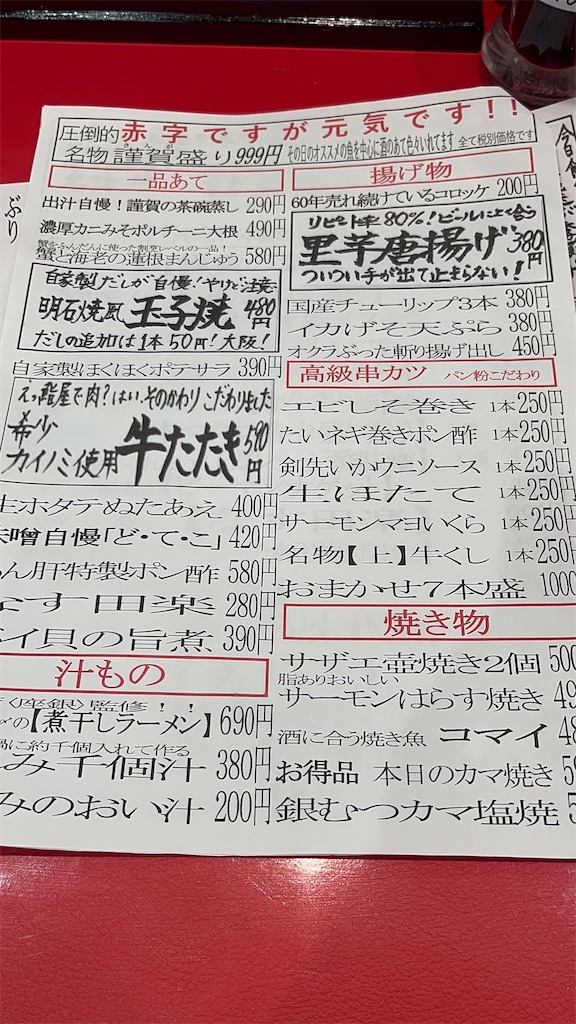 圧倒的赤字ですが元気です!!
名物謹賀盛り999円 その日のオススメの魚を中心に酒のあて色々いれてます 全て税別価格です
一品あて
出汁自慢!謹賀の茶碗蒸し 290円
濃厚カニみそポルチーニ大根 490円
蟹をふんだんに使った割烹レベルの一品!
蟹と海老の蓮根まんじゅう 580円
自家製だしが自慢!やけど注意
明石焼風 玉子焼 480円
だしの追加は1本50円!大阪!
自家製ほくほくポテサラ 390円
えっ魚皆屋で肉?はい、そのかわりこだわり出ました
希少
カイノミ使用 牛たたき 590円
生ホタテぬたあえ 400円
味噌自慢「ど・て・こ」 420円
ん肝特製ポン酢 580円
なす田楽 280円
イ貝の旨煮 390円
汁もの
〈座銀〉監修!!
の【煮干しラーメン】 690円
鍋に約千個入れて作る
み千個汁 380円
みのおい汁 200円
揚げ物
60年売れ続けているコロッケ 200円
リピート率80%!ビールによく合う
里芋唐揚げ 380円
ついつい手が出て止まらない!
国産チューリップ3本 380円
イカげそ天ぷら 380円
オクラぶった斬り揚げ出し 450円
高級串カツ パン粉こだわり
エビしそ巻き 1本250円
たいネギ巻きポン酢 1本250円
剣先いかウニソース 1本250円
生ほたて 1本250円
サーモンマヨいくら 1本250円
名物【上】牛くし 1本250円
おまかせ7本盛 1000
焼き物
サザエ壺焼き2個 500
脂ありおいしい
サーモンはらす焼き 49
酒に合う焼き魚 コマイ 48
お得品 本日のカマ焼き 5
銀むつカマ塩焼 5
ぶり